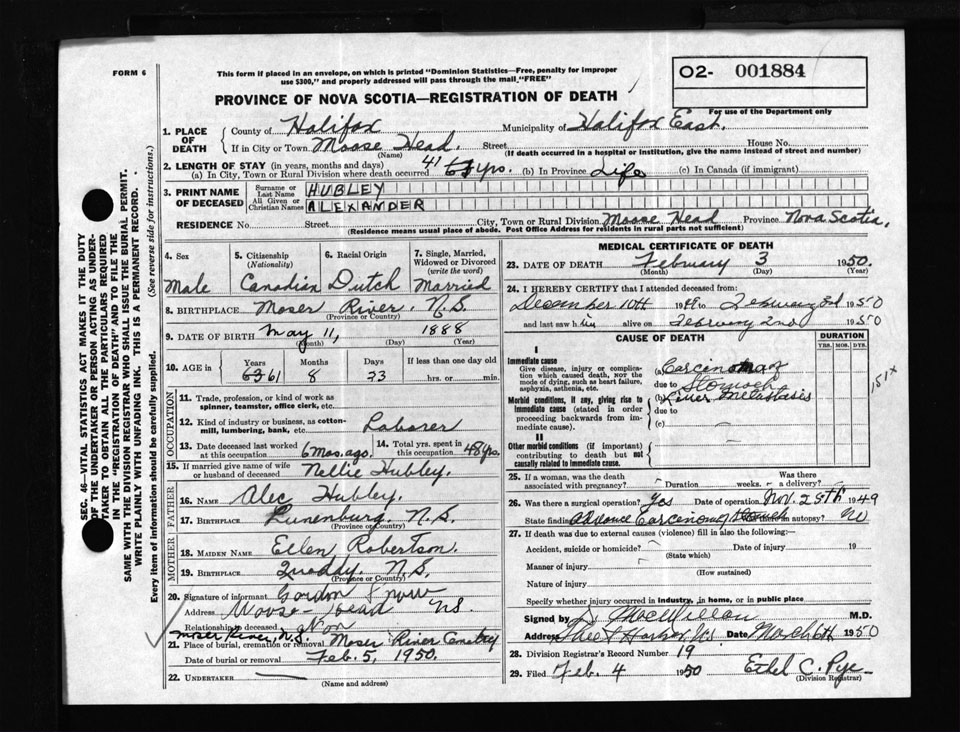 FORM 6
This form if placed in an envelope, on which is printed "Dominion Statistics—Free, penalty for improper
use $300," and properly addressed will pass through the mail "FREE"
PROVINCE OF NOVA SCOTIA—REGISTRATION OF DEATH
O2- 001884
For use of the Department only
1. PLACE OF DEATH
County of Halifax Municipality of Halifax East.
If in City or Town Moose Head. Street House No.
(Name) (If death occurred in a hospital or institution, give the name instead of street and number)
2. LENGTH OF STAY (in years, months and days)
(a) In City, Town or Rural Division where death occurred 41 yrs. (b) In Province Life (c) In Canada (if immigrant)
3. PRINT NAME OF DECEASED
Surname or Last Name HUBLEY
All Given or Christian Names ALEXANDER
RESIDENCE No. Street City, Town or Rural Division Moose Head Province Nova Scotia.
(Residence means usual place of abode. Post Office Address for residents in rural parts not sufficient)
4. Sex Male
5. Citizenship (Nationality) Canadian
6. Racial Origin Dutch
7. Single, Married, Widowed or Divorced (write the word) Married
8. BIRTHPLACE Moser River, N.S.
(Province or Country)
9. DATE OF BIRTH May 11, 1888
(Month) (Day) (Year)
10. AGE in Years Months Days If less than one day old
63 61 8 23 hrs. or min.
OCCUPATION
11. Trade, profession, or kind of work as
spinner, teamster, office clerk, etc.
12. Kind of industry or business, as cotton-
mill, lumbering, bank, etc. Laborer
13. Date deceased last worked at this occupation 6 mos. ago.
14. Total yrs. spent in this occupation 48 yrs.
15. If married give name of wife or husband of deceased Nellie Hubley.
FATHER
16. NAME Alec Hubley.
17. BIRTHPLACE Lunenburg, N.S.
(Province or Country)
MOTHER
18. MAIDEN NAME Ellen Robertson.
19. BIRTHPLACE Quoddy. N.S.
(Province or Country)
20. Signature of informant Gordon Snow
Address Moose-Head NS.
Relationship to deceased Non
Moser River, N.S.
21. Place of burial, cremation or removal Moser River Cemetery
Date of burial or removal Feb. 5, 1950.
22. UNDERTAKER
(Name and address)
MEDICAL CERTIFICATE OF DEATH
23. DATE OF DEATH February 3 1950.
(Month) (Day) (Year)
24. I HEREBY CERTIFY that I attended deceased from:
December 10th 1949 to February 3rd 1950
and last saw him alive on February 2nd 1950
CAUSE OF DEATH
DURATION
YRS. MOS. DYS.
I
Immediate cause
Give disease, injury or complica-
tion which caused death, not the
mode of dying, such as heart failure,
asphyxia, asthenia, etc.
(a) Carcinoma of
due to Stomach
Morbid conditions, if any, giving rise to
immediate cause (stated in order
proceeding backwards from im-
mediate cause).
(b) Liver Metastasis
due to
(c)
151X
II
Other morbid conditions (if important)
contributing to death but not
causally related to immediate cause.
25. If a woman, was the death associated with pregnancy? Duration weeks. Was there a delivery?
26. Was there a surgical operation? Yes Date of operation Nov. 29th 1949
State findings Advance Carcinoma of Stomach Was there an autopsy? No
27. If death was due to external causes (violence) fill in also the following:—
Accident, suicide or homicide? Date of injury 19
(State which)
Manner of injury
(How sustained)
Nature of injury
Specify whether injury occurred in industry, in home, or in public place
Signed by MacMillan M.D.
Address Sheet Harbor, N.S. Date March 6th 1950
28. Division Registrar's Record Number 19
29. Filed Feb. 4 1950 Ethel C. Pye
(Division Registrar)
SEC. 46—VITAL STATISTICS ACT MAKES IT THE DUTY
OF THE UNDERTAKER OR PERSON ACTING AS UNDER-
TAKER TO OBTAIN ALL THE PARTICULARS REQUIRED
IN THE "REGISTRATION OF DEATH" AND TO FILE THE
SAME WITH THE DIVISION REGISTRAR WHO SHALL ISSUE THE BURIAL PERMIT.
WRITE PLAINLY WITH UNFADING INK. THIS IS A PERMANENT RECORD.
Every item of information should be carefully supplied. (See reverse side for instructions.)